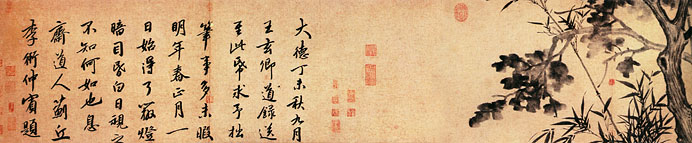 大德丁未秋九月
王玄卿道錄送
至此紙求予拙
筆事多未暇
明年春正月一
日始得了囗燈
暗目昏白日視之
不知何如也息
齋道人薊丘
李衎仲賓題